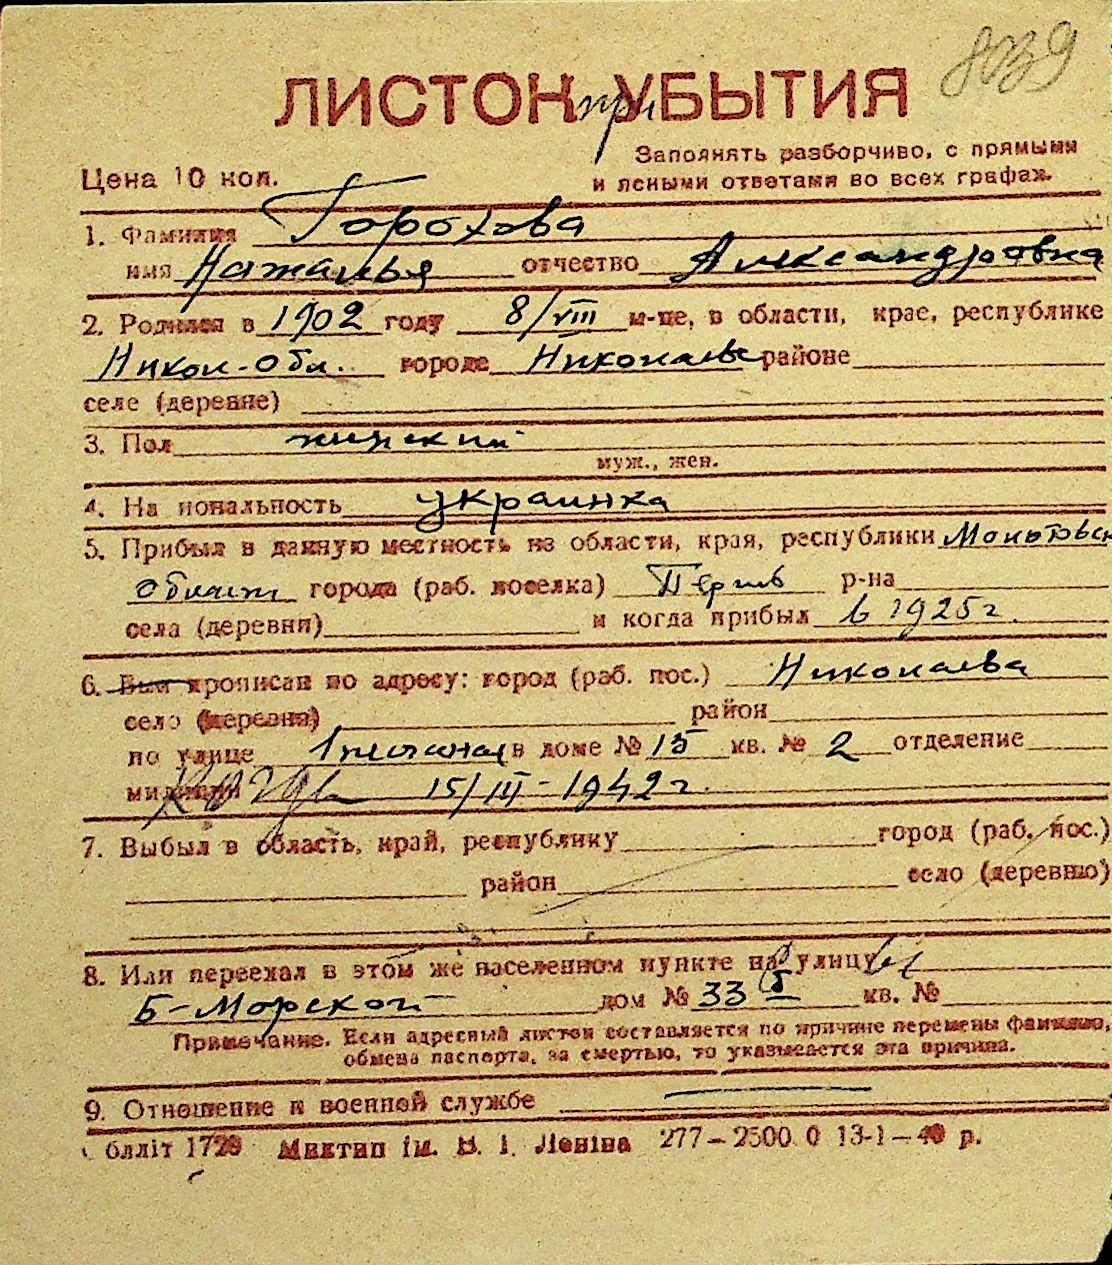 8039
ЛИСТОК при УБЫТИЯ
Цена 10 коп.
Заполнять разборчиво, с прямыми
и ясными ответами во всех графах.
1. Фамилия Горохова
имя Наталья отчество Александровна
2. Родился в 1902 году 8/VIII м-це, в области, крае, республике
Никол-Обл. городе Николаеве районе
селе (деревне)
3. Пол женский
муж., жен.
4. На иональность украинка
5. Прибыл в данную местность из области, края, республики
области города (раб. поселка) р-на
села (деревни) и когда прибыл в 1925 г.
6. Был прописан по адресу: город (раб. пос.) Николаева
село (деревня) район
по улице в доме № 15 кв. № 2 отделение
милиции когда 15/III - 1942 г.
7. Выбыл в область, край, республику город (раб. пос.)
район село (деревню)
8. Или переехал в этом же населенном пункте на улицу
Б-Морской дом № 33 б кв. №
Примечание. Если адресный листок составляется по причине перемены фамилии,
обмена паспорта, за смертью, то указывается эта причина.
9. Отношение к военной службе
блліт 1729 Миктип ім. В. І. Леніна 277-2500.0 13-1-40 р.